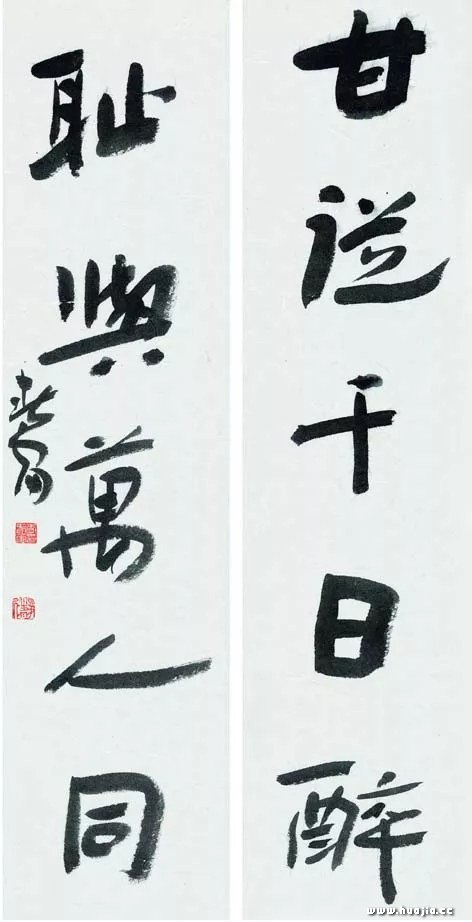 甘從千日醉
耻與萬人同
www.huajia.cc